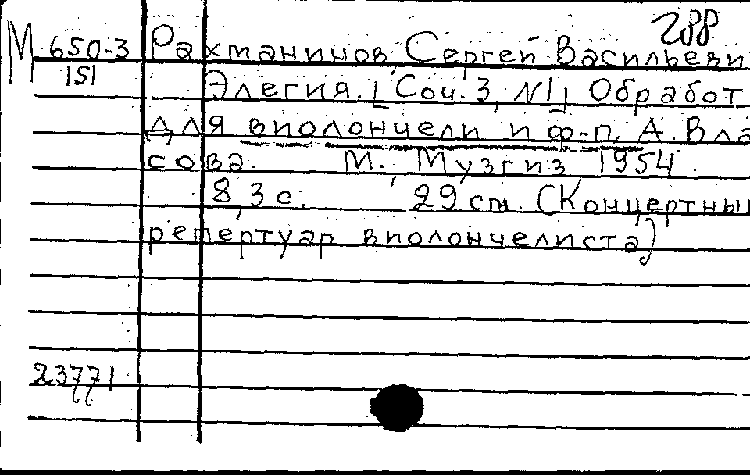 288
М 650-3 Рахманинов Сергей Васильеви
151 Элегия. [Соч. 3, N1] Обработ
для виолончели и ф-п. А. Вла
сова. М. Музгиз 1954
8, 3 с. 29 cm. (Концертны
репертуар виолончелиста)
23771